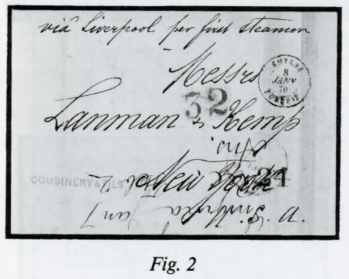 via Liverpool per first steamer
SMYRNE
8
JANV
70
TURQUIE
Messrs
32
Lanman & Kemp
New York
24
COUSINERY & FILS
Fig. 2